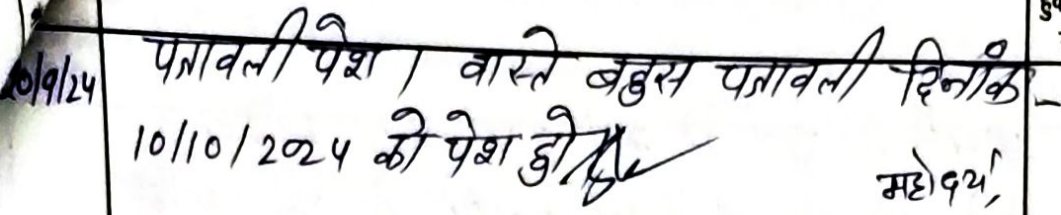 पत्रावली पेश । वास्ते बहुस पत्रावली दिनांक
10/10/2024 को पेश हो
महोदय,